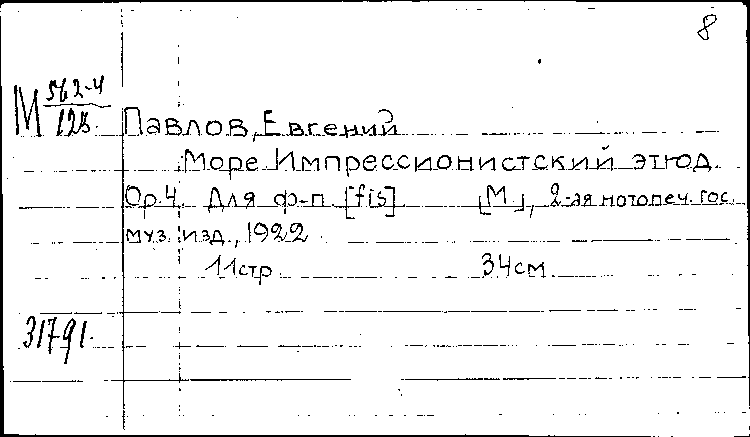 8
М 562-4
Павлов, Евгений
Море. Импрессионистский этюд.
Op. 4. Для ф-п. [fis] [М], 2-ая нотопеч. гос.
муз. изд., 1922.
11стр 34см.
31791.